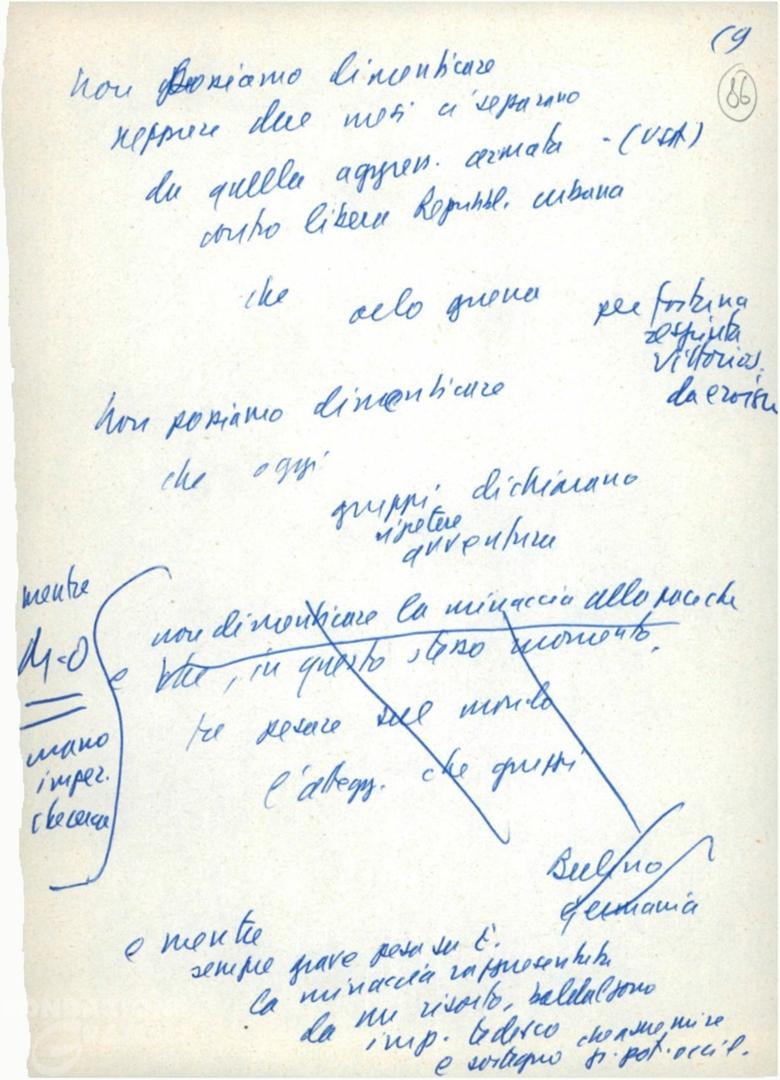 19
86
non possiamo dimenticare
neppure due mesi ci separano
da quella aggress. armata - (USA)
contro libera Repubbl. cubana
che solo guerra
per fortuna
respinta
vittorios.
da eroism
Non possiamo dimenticare
che oggi
gruppi dichiarano
ripetere
avventura
mentre
mano
imper.
che cerca
non dimenticare la minaccia alla pace che
e che, in questo stesso momento,
fa pesare sul mondo
l'attegg. che gruppi
Berlino
germania
e mentre
sempre grave pesa su E.
la minaccia rappresentata
da un risorto, baldalzoso
imp. tedesco
e sostegno gr. pot. occid.
FONDAZIONE